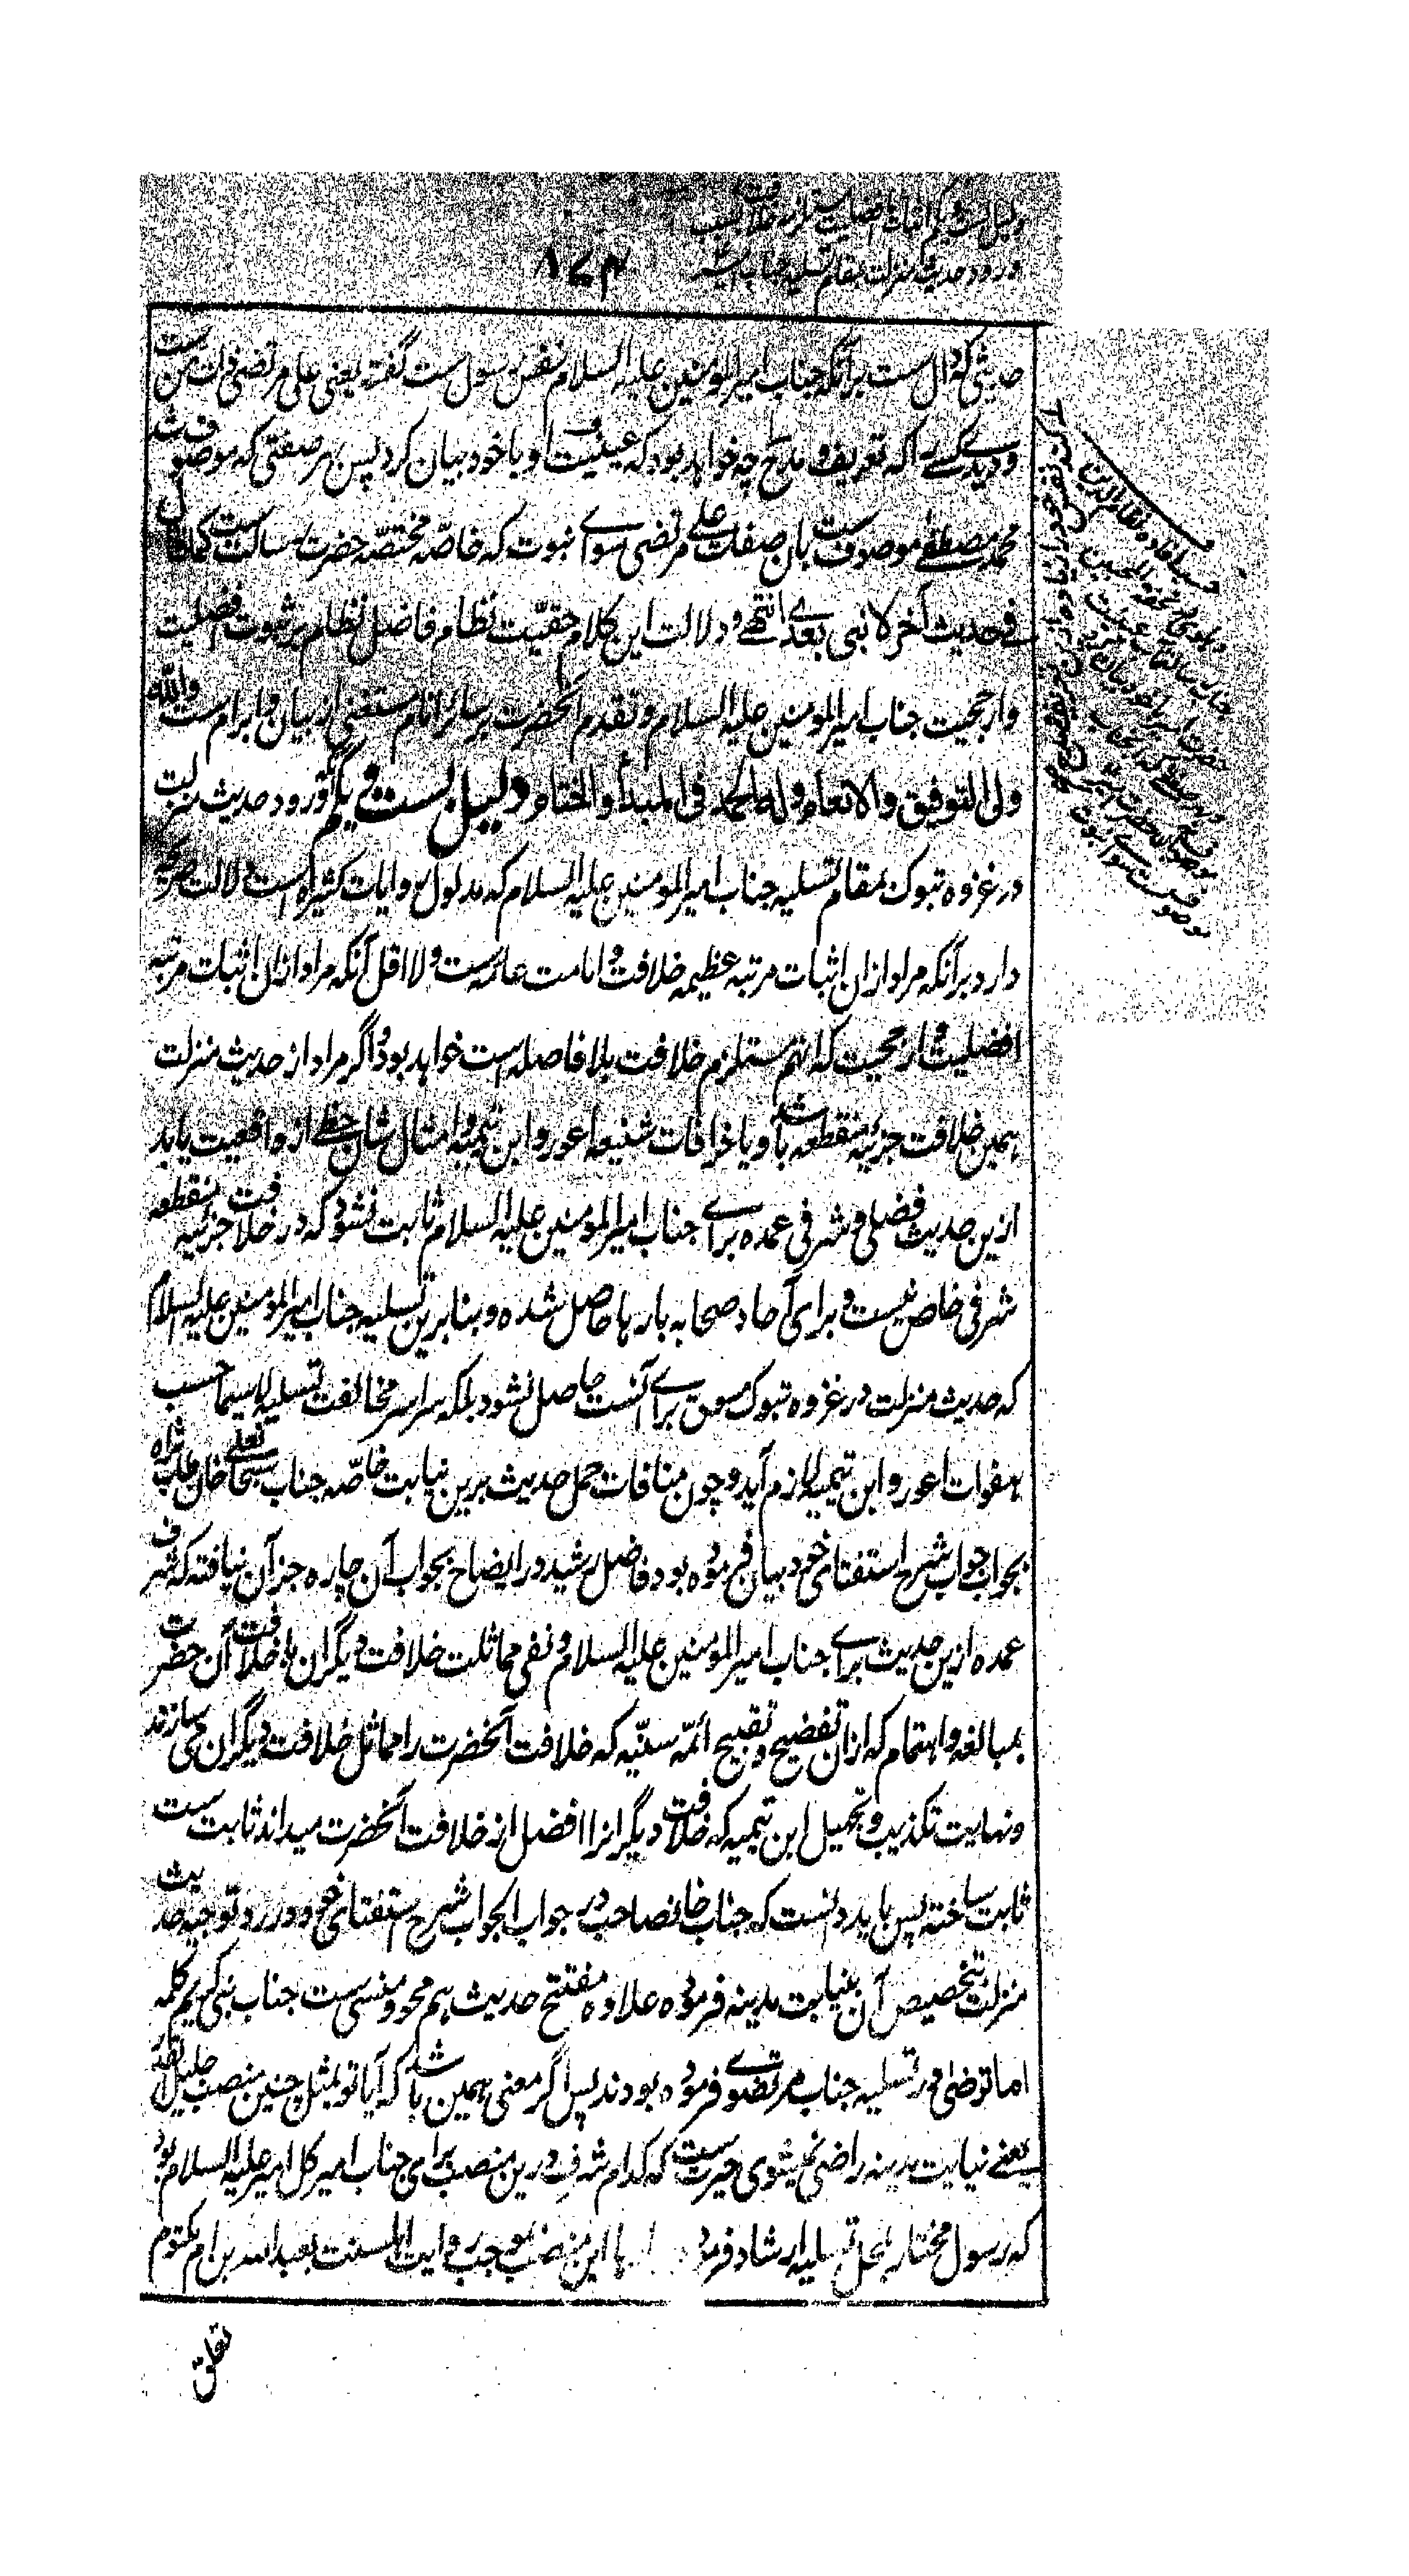 دلیل بست و یکم اثبات افضلیت خلافت بسبب
ورود حدیث منزلت بمقام تسلیه جناب امیر
۸۷۴
حدیثی که دال ست برآنکه جناب امیرالمومنین علیه السلام نفس رسول ست گفته یعنی علی مرتضی ذات من ست
و دیگر کسے را که تعریف و مدح چه خواهد بود که عینیت او با خود بیان کرد پس بهر صفتی که موصوف شد
محمد مصطفے موصوف ست بان صفات علی مرتضی سوای نبوت که خاصّه مختصّه حضرت رسالت ست کما قال
فے حدیث آخر لا نبی بعدے انتهے و دلالت این کلام حقیّت نظام فاضل نظام بر ثبوت افضلیت
وارجحیت جناب امیرالمومنین علیه السلام و تقدم آنحضرت بر سائر انام مستغنی از بیان و ابرام ست والله
ولی التوفیق والانعام وله الحمد فی المبدأ والختام دلیل بست و یکم ورود حدیث منزلت
در غزوه تبوک بمقام تسلیه جناب امیرالمومنین علیه السلام که مدلول روایات کثیره است دلالت صریحه
دارد برآنکه مراد ازان اثبات مرتبه عظیمه خلافت و امامت عامه ست ولا اقل آنکه مراد ازان اثبات مرتبه
افضلیت و ارجحیت که آنهم مستلزم خلافت بلا فاصله است خواهد بود و اگر مراد از حدیث منزلت
همین خلافت جزئیه منقطعه باشد و یا خرافات شنیعه اعور و ابن تیمیه و امثال شان حظے از واقعیت یابد
ازین حدیث فضلی و شرفی عمده برای جناب امیرالمومنین علیه السلام ثابت نشود که در خلافت جزئیه منقطعه
شرفی خاص نیست و برای آحاد صحابه بارها حاصل شده و بنابرین تسلیه جناب امیرالمومنین علیه السلام
که حدیث منزلت در غزوه تبوک مسوق برای آنست حاصل نشود بلکه سراسر مخالفت تسلیه لاسیما حسب
هفوات اعور و ابن تیمیه لازم آید و چون منافات حمل حدیث برین نیابت خاصّه جناب سبحانعلی خان طاب ثراه
بجواب جواب شرح استفتای خود بیان فرموده بود فاضل رشید در ایضاح بجواب آن چاره جز آن نیافته که شرف
عمده ازین حدیث برای جناب امیرالمومنین علیه السلام و نفی مماثلت خلافت دیگران با خلافت آن حضرت
بمبالغه و اهتمام که ازان تفضیح و تقبیح ائمّه سنّیه که خلافت آنحضرت را مماثل خلافت دیگران می سازند
و نهایت تکذیب و تجهیل ابن تیمیه که خلافت دیگرانرا افضل از خلافت آنحضرت میداند ثابت ست
ثابت ساخته پس باید دانست که جناب خانصاحب در جواب الجواب شرح استفتای خود در رد توجیه حدیث
منزلت بتخصیص آن بنیابت مدینه فرموده علاوه مفتتح حدیث هم محو و منسی ست جناب نبی کریم کلمه
اما ترضی در تسلیه جناب مرتضوی فرموده بودند پس اگر معنی همین باشد که آیا تو بمثل چنین منصب جلیل القدر
یعنے نیابت مدینه راضی نمیشوی حیرت ست که کدام شرف درین منصب برای جناب امیر کل امیر علیه السلام بود
که رسول مختار بمحل تسلیه ارشاد فرمود این منصب بموجب روایت اهلسنت بعبدالله بن ام مکتوم
تعلق